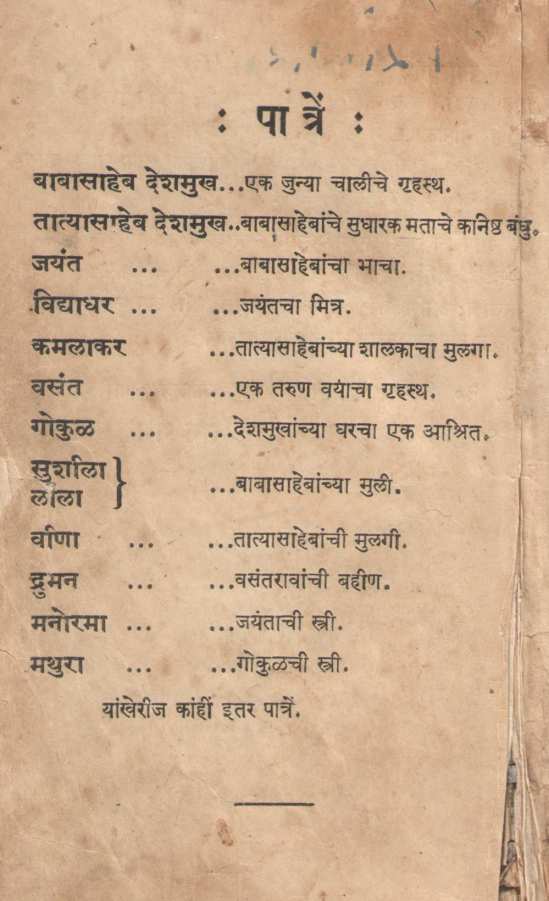 : पात्रें :
बाबासाहेब देशमुख...एक जुन्या चालीचे गृहस्थ.
तात्यासाहेब देशमुख..बाबासाहेबांचे सुधारक मताचे कनिष्ठ बंधु.
जयंत ... ...बाबासाहेबांचा भाचा.
विद्याधर ... ...जयंतचा मित्र.
कमलाकर ...तात्यासाहेबांच्या शालकाचा मुलगा.
वसंत ... ...एक तरुण वयाचा गृहस्थ.
गोकुळ ... ...देशमुखांच्या घरचा एक आश्रित.
सुशीला
लीला } ...बाबासाहेबांच्या मुली.
वीणा ... ...तात्यासाहेबांची मुलगी.
द्रुमन ... ...वसंतरावांची बहीण.
मनोरमा ... ...जयंताची स्त्री.
मथुरा ... ...गोकुळची स्त्री.
यांखेरीज कांहीं इतर पात्रें.